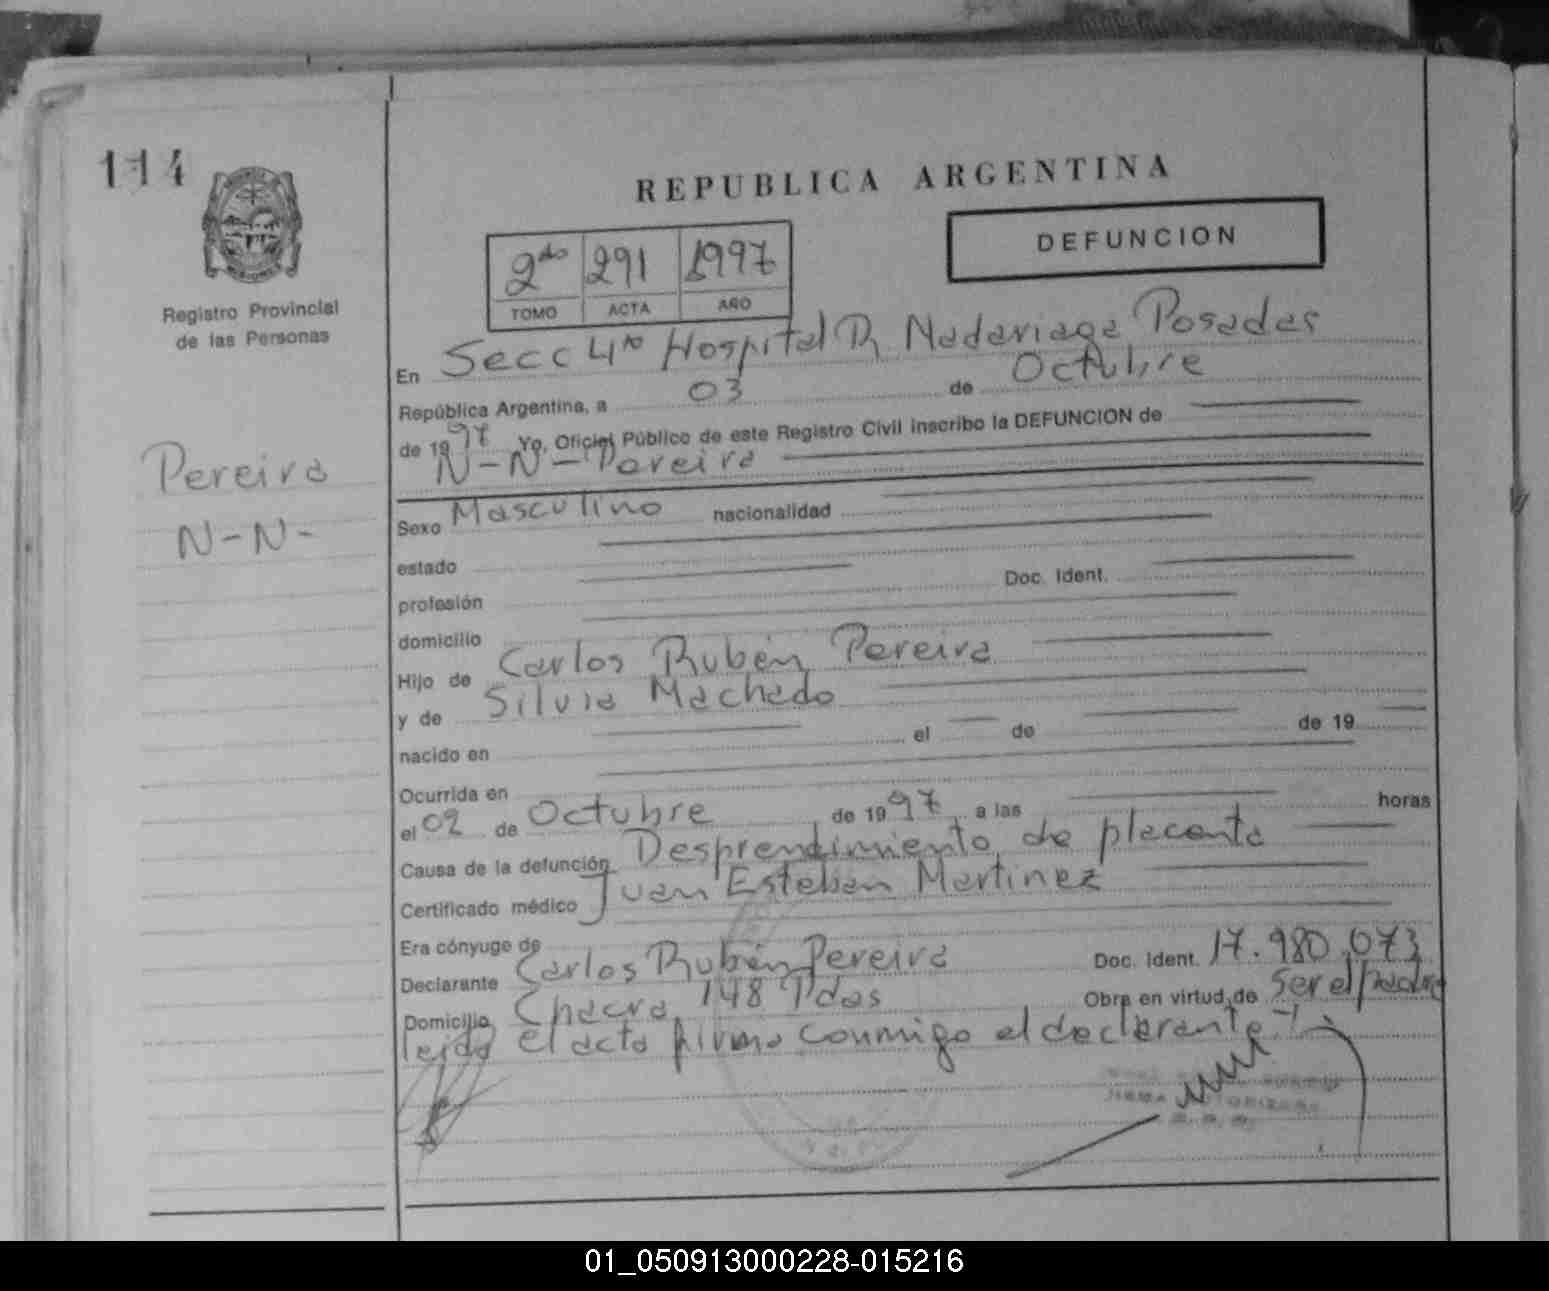 114
REPUBLICA ARGENTINA
DEFUNCION
2do 291 1997
TOMO ACTA AÑO
Registro Provincial
de las Personas
En Secc 4ta Hospital R Madariaga Posadas
República Argentina, a 03 de Octubre
de 1997 Yo, Oficial Público de este Registro Civil inscribo la DEFUNCION de
N-N- Pereira
Pereira
N-N-
Sexo Masculino nacionalidad
estado
profesión Doc. Ident.
domicilio
Hijo de Carlos Rubén Pereira
y de Silvia Machado
nacido en el de de 19
Ocurrida en
el 02 de Octubre de 1997, a las horas
Causa de la defunción Desprendimiento de placenta
Certificado médico Juan Esteban Martinez
Era cónyuge de
Declarante Carlos Rubén Pereira Doc. Ident. 17.980.073
Domicilio Chacra 148 Pdas Obra en virtud de ser el padre
leida el acta firma conmigo el declarante
01_050913000228-015216